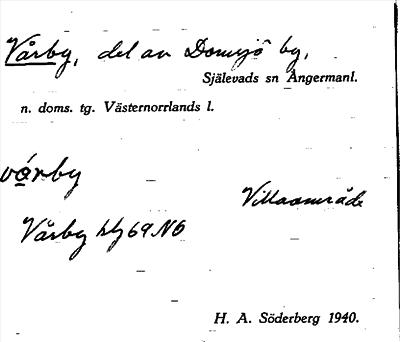 Vårby, del av Domsjö by,
Själevads sn Ångermanl.
n. doms. tg. Västernorrlands l.
vårby
Villaområde
Vårby hlj 69 NO
H. A. Söderberg 1940.